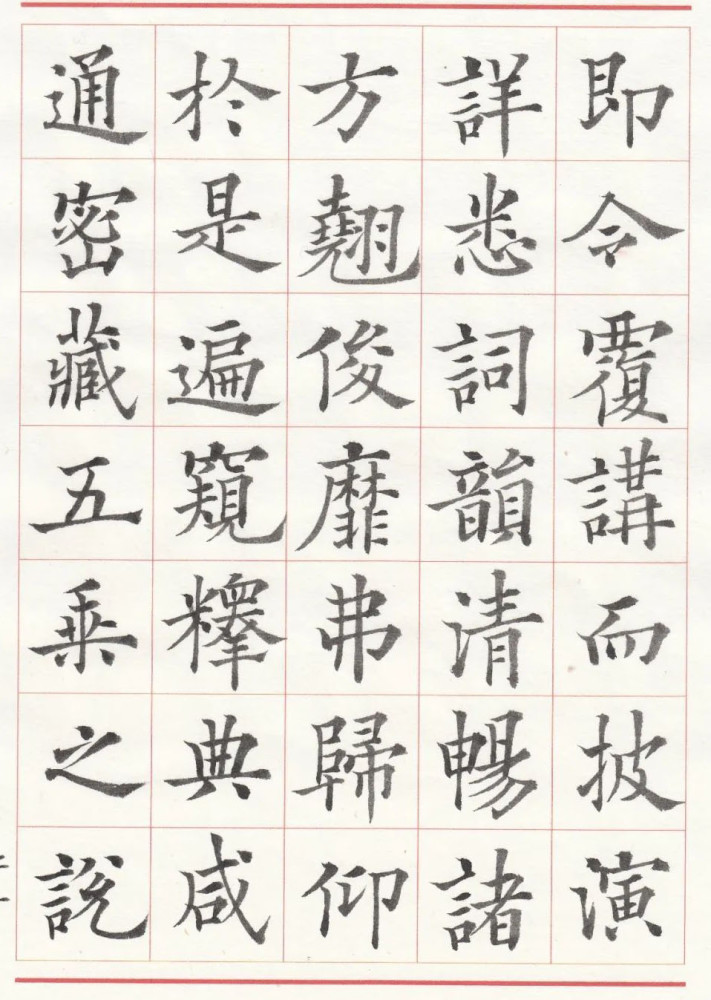 即令覆講而披演
詳悉詞韻清暢諸
方翹俊靡弗歸仰
於是遍窺釋典咸
通密藏五乘之說